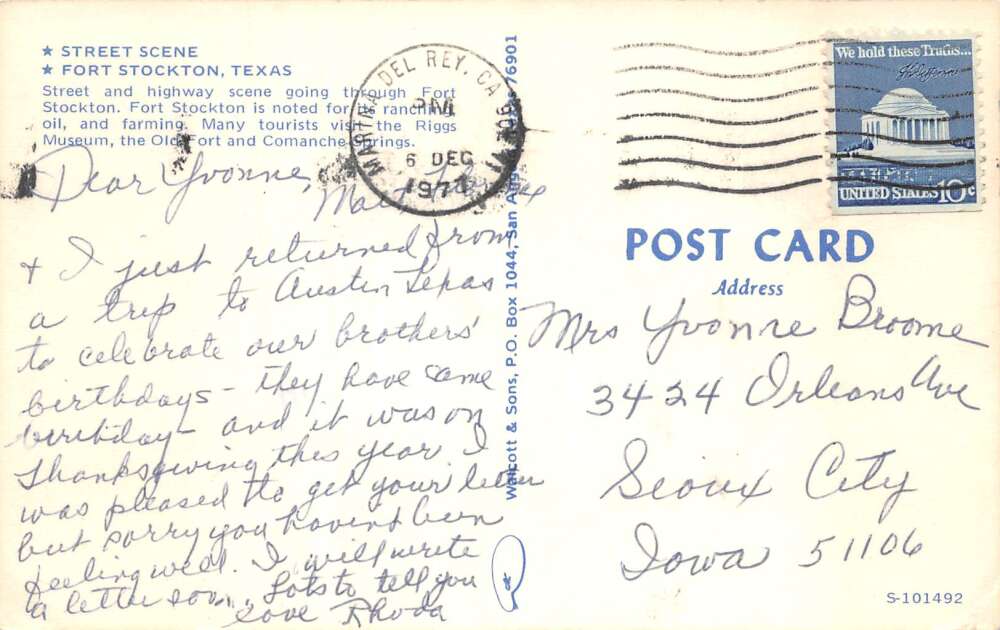 ★ STREET SCENE
★ FORT STOCKTON, TEXAS
Street and highway scene going through Fort
Stockton. Fort Stockton is noted for its ranching,
oil, and farming. Many tourists visit the Riggs
Museum, the Old Fort and Comanche Springs.
MARINA DEL REY, CA 90291
PM
6 DEC
1977
We hold these Truths...
UNITED STATES 10c
Dear Yvonne,
+ I just returned from
a trip to Austin Texas
to celebrate our brothers'
birthdays - they have same
birthday - and it was on
Thanksgiving this year I
was pleased to get your letter
but sorry you havent been
feeling well. I will write
a letter soon. Lots to tell you
Love Rhoda
Walcott & Sons, P.O. Box 1044, San Angelo, Texas 76901
POST CARD
Address
Mrs Yvonne Broome
3424 Orleans Ave
Sioux City
Iowa 51106
S-101492